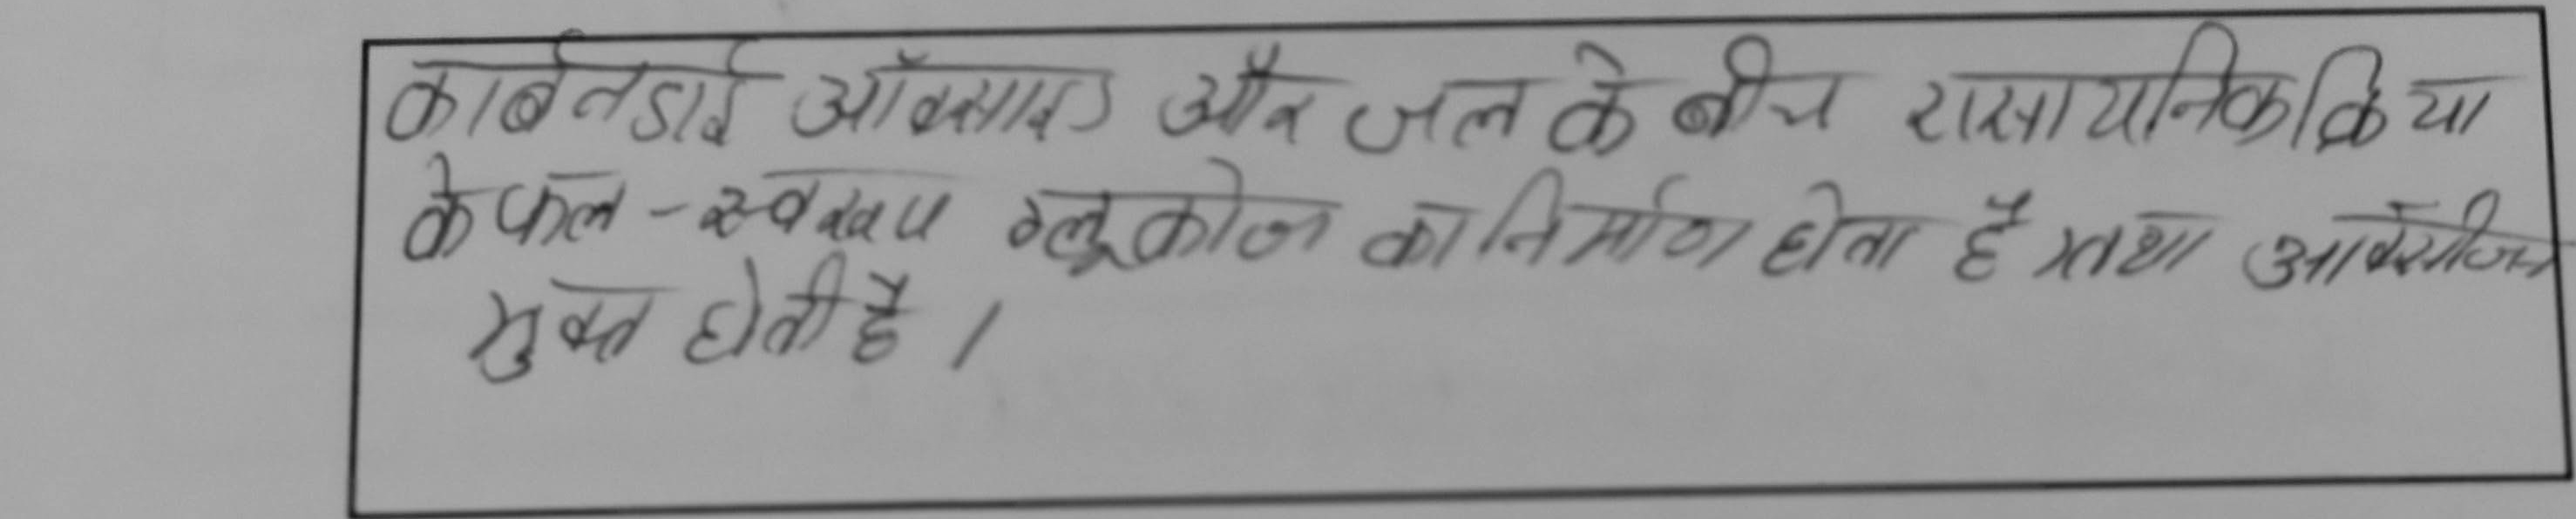 कार्बनडाई ऑक्साइड और जल के बीच रासायनिक क्रिया
के फल-स्वरूप ग्लूकोज का निर्माण होता है तथा ऑक्सीजन
मुक्त होती है।